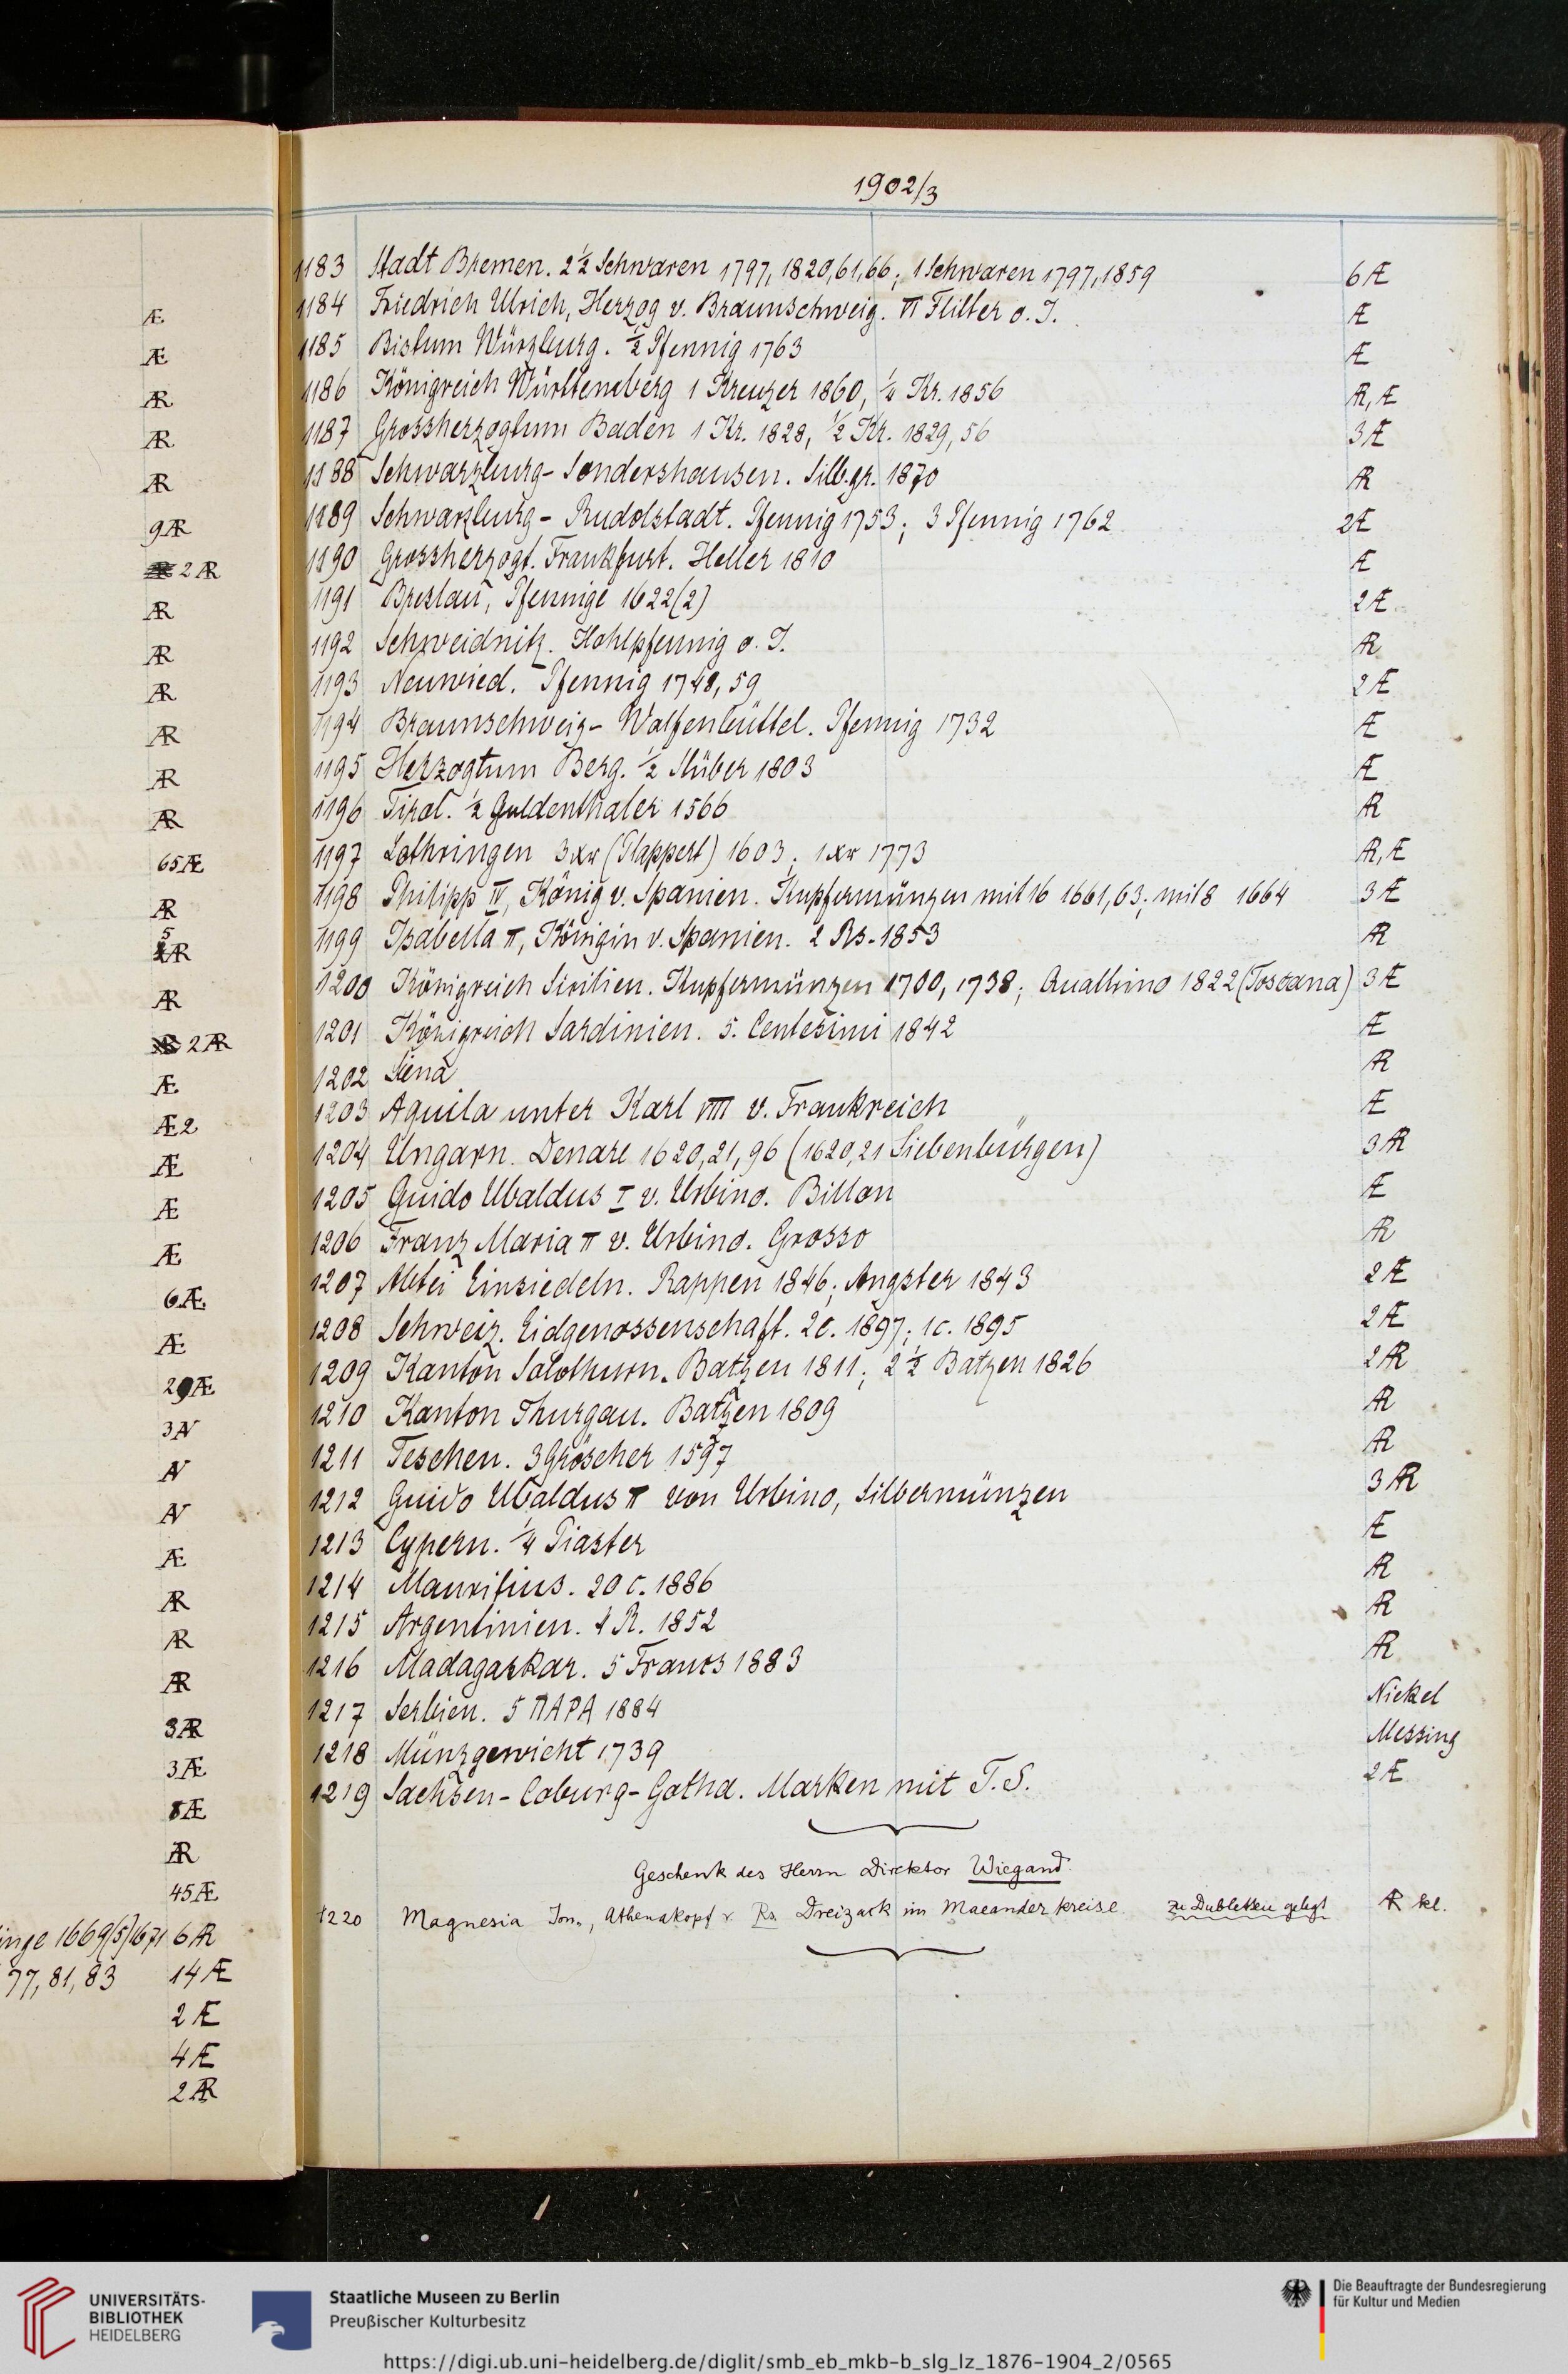 Æ
Æ
AR
AR
AR
9AR
2AR
AR
AR
AR
AR
AR
AR
65Æ
AR
5
AR
AR
2AR
Æ
Æ2
Æ
Æ
Æ
6Æ.
Æ
29Æ
3N
N
N
Æ
AR
AR
AR
3AR
3Æ
8Æ
AR
45Æ
inge 1669(5)1671 6AR
77, 81, 83 14Æ
2Æ
4Æ
2AR
1902/3
1183 Stadt Bremen. 2½ Schwaren 1797, 1820,61,66; 1 Schwaren 1797,1859 6Æ
1184 Friedrich Ulrich, Herzog v. Braunschweig. II Flitter o. J. Æ
1185 Bistum Würzburg. ½ Pfennig 1763 Æ
1186 Königreich Württemberg 1 Kreuzer 1860, ¼ Kr. 1856 AR, Æ
1187 Grossherzogtum Baden 1 Kr. 1828, ½ Kr. 1829, 56 3Æ
1188 Schwarzburg-Sondershausen. Silb.gr. 1870 AR
1189 Schwarzburg-Rudolstadt. Pfennig 1753; 3 Pfennig 1762 2Æ
1190 Grossherzogt. Frankfurt. Heller 1810 Æ
1191 Breslau, Pfennige 1622(2) 2Æ
1192 Schweidnitz. Hohlpfennig o. J. AR
1193 Neuwied. Pfennig 1748, 59 2Æ
1194 Braunschweig-Wolfenbüttel. Pfennig 1732 Æ
1195 Herzogtum Berg. ½ Stüber 1803 Æ
1196 Tirol. ½ Guldenthaler 1566 AR
1197 Lothringen 3xr (Plappert) 1603; 1xr 1773 AR, Æ
1198 Philipp IV, König v. Spanien. Kupfermünzen mit 16 1661, 63; mit 8 1664 3Æ
1199 Isabella II, Königin v. Spanien. 2 Rs. 1853 AR
1200 Königreich Sicilien. Kupfermünzen 1700, 1738; Quattrino 1822 (Toscana) 3Æ
1201 Königreich Sardinien. 5. Centesimi 1842 Æ
1202 Siena AR
1203 Aquila unter Karl VIII v. Frankreich Æ
1204 Ungarn. Denare 1620,21,96 (1620,21 Siebenbürgen) 3AR
1205 Guido Ubaldus I v. Urbino. Billon Æ
1206 Franz Maria II v. Urbino. Grosso AR
1207 Abtei Einsiedeln. Rappen 1846; Angster 1843 2Æ
1208 Schweiz. Eidgenossenschaft. 2c. 1897; 1c. 1895 2Æ
1209 Kanton Solothurn. Batzen 1811; 2½ Batzen 1826 2AR
1210 Kanton Thurgau. Batzen 1809 AR
1211 Teschen. 3Gröscher 1597 AR
1212 Guido Ubaldus II von Urbino, Silbermünzen 3AR
1213 Cypern. ¼ Piaster Æ
1214 Mauritius. 20 c. 1886 AR
1215 Argentinien. 4 R. 1852 AR
1216 Madagaskar. 5 Francs 1883 AR
1217 Serbien. 5 ПАРА 1884 Nickel
1218 Münzgewicht 1739 Messing
1219 Sachsen-Coburg-Gotha. Marken mit T.S. 2Æ
Geschenk des Herrn Direktor Wiegand.
1220 Magnesia Ion., Athenakopf r. Rs. Dreizack im Maeanderkreise zu Dubletten gelegt AR kl.
UNIVERSITÄTS-
BIBLIOTHEK
HEIDELBERG
Staatliche Museen zu Berlin
Preußischer Kulturbesitz
Die Beauftragte der Bundesregierung
für Kultur und Medien
https://digi.ub.uni-heidelberg.de/diglit/smb_eb_mkb-b_slg_lz_1876-1904_2/0565